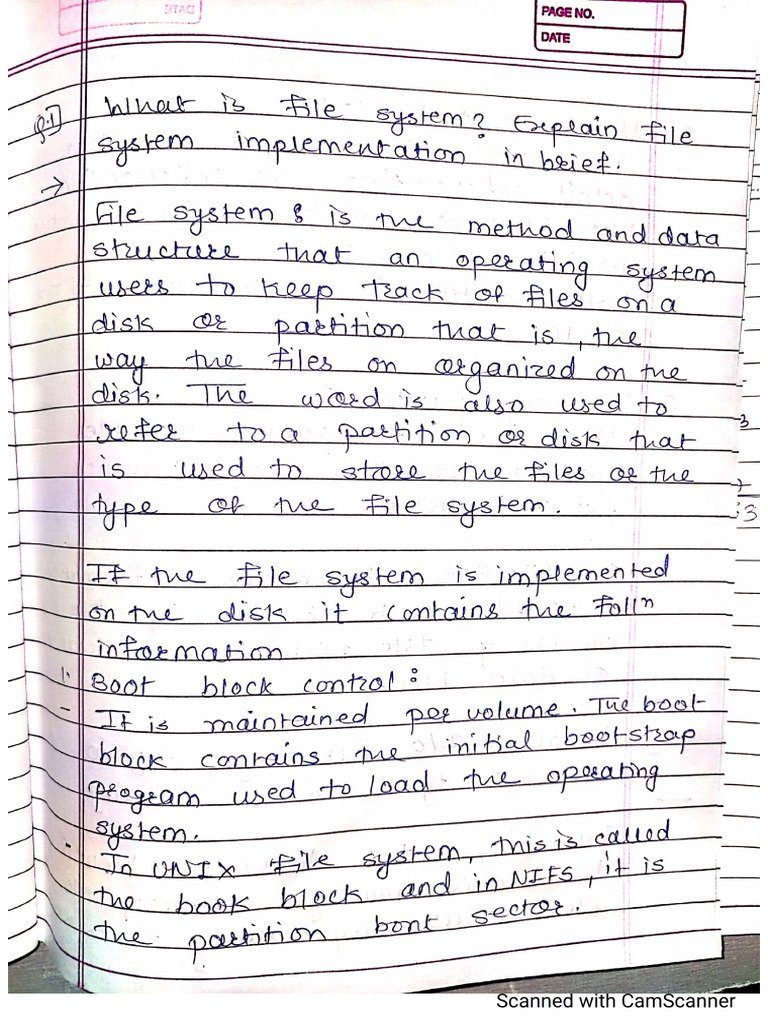 DATE
PAGE NO.
DATE
Q.1] What is file system? Explain file
system implementation in brief.
→
File system : is the method and data
structure that an operating system
users to keep track of files on a
disk or partition that is, the
way the files on organized on the
disk. The word is also used to
refer to a partition or disk that
is used to store the files or the
type of the file system.
If the file system is implemented
on the disk it contains the follⁿ
information
1. Boot block control:
- It is maintained per volume. The boot-
block contains the initial bootstrap
program used to load the operating
system.
- In UNIX file system, this is called
the book block and in NIFS, it is
the partition bont sector.
3
3
Scanned with CamScanner